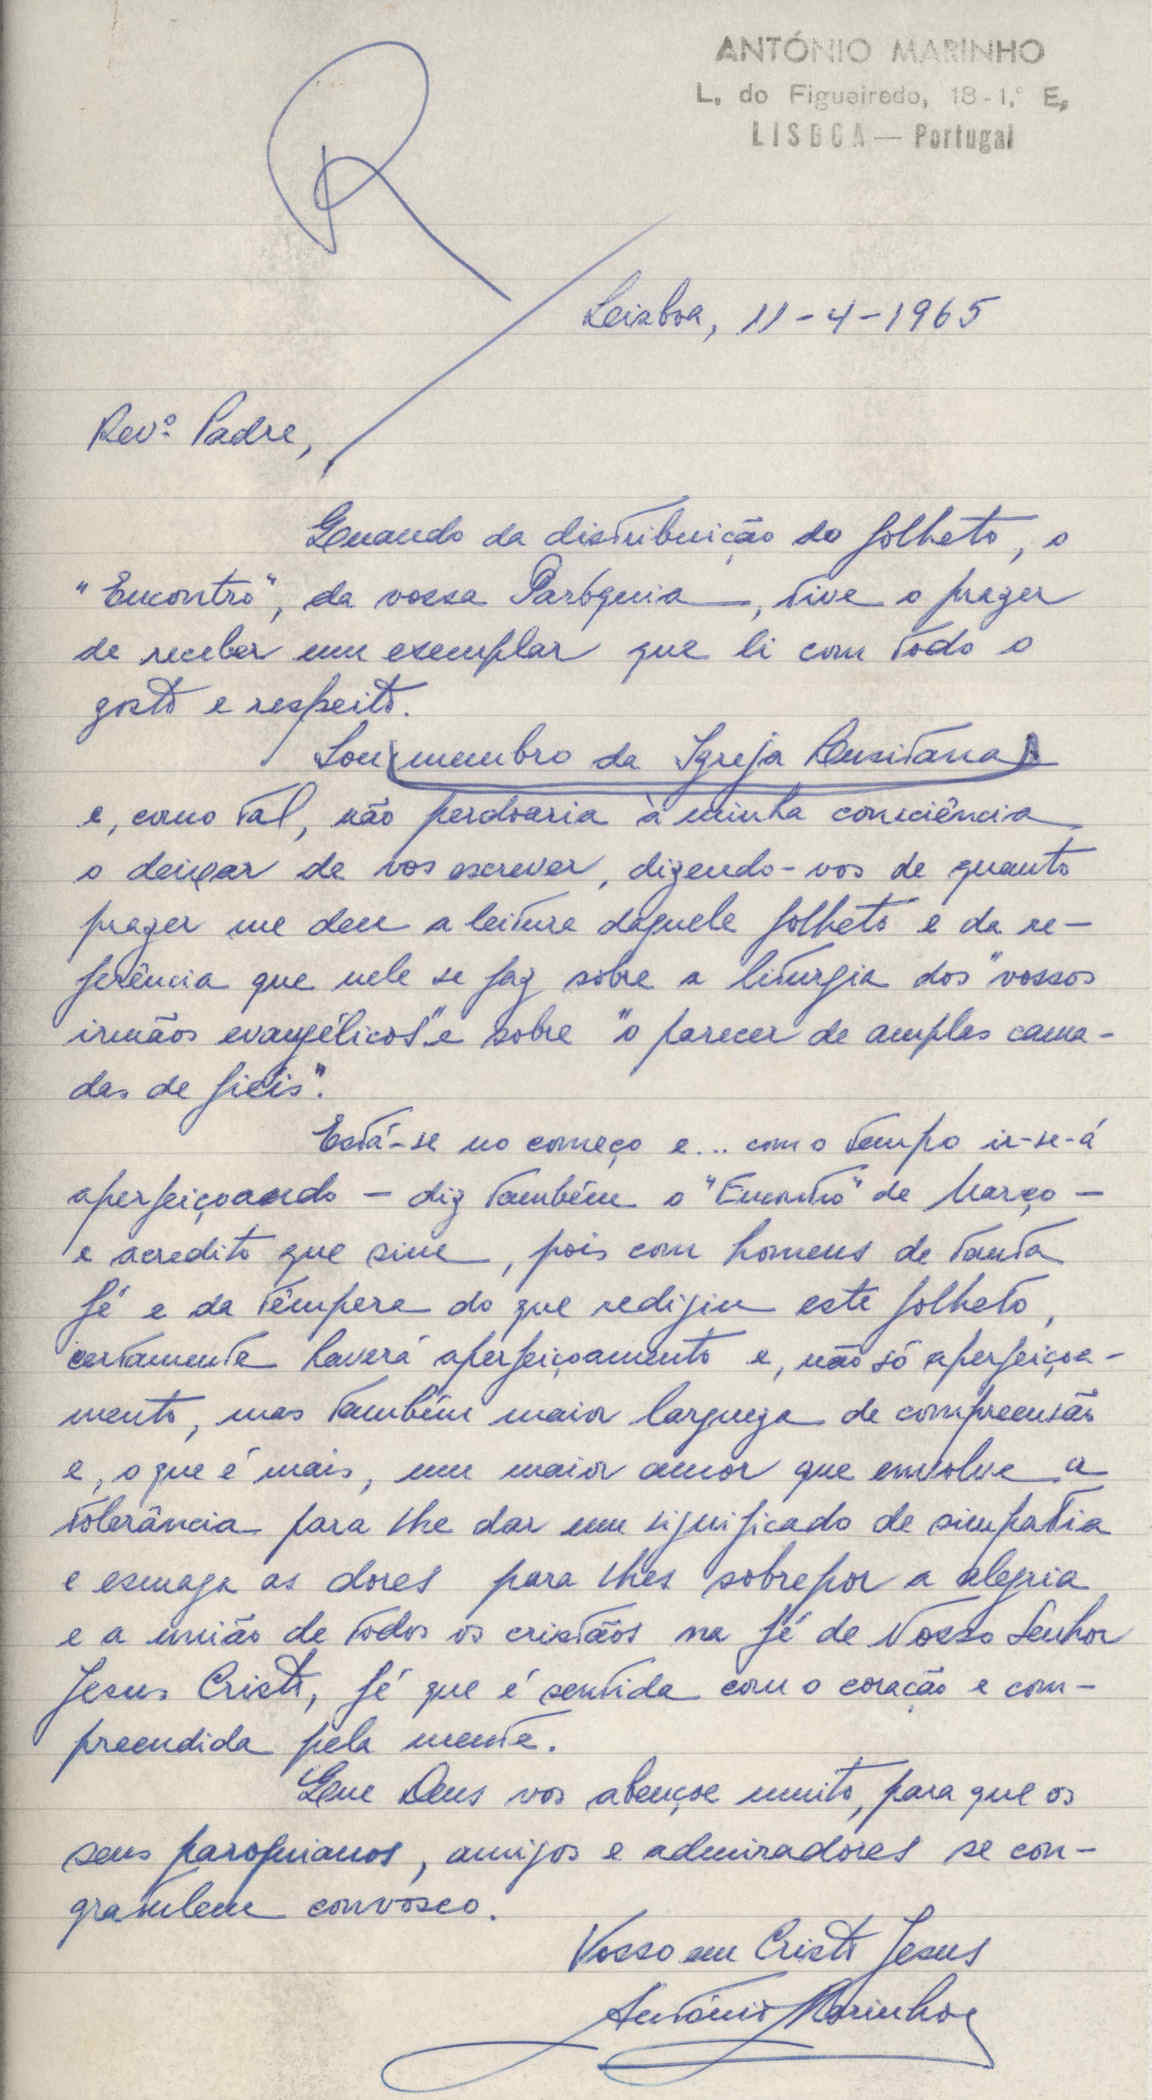 ANTÓNIO MARINHO
L. do Figueiredo, 18-1.º E,
LISBOA — Portugal
R
Lisboa, 11-4-1965
Revº Padre,
Quando da distribuição do folheto, o
"Encontro", da vossa Paróquia, tive o prazer
de receber um exemplar que li com todo o
gosto e respeito.
Sou membro da Igreja Lusitana
e, como tal, não perdoaria à minha consciência
o deixar de vos escrever, dizendo-vos de quanto
prazer me deu a leitura daquele folheto e da re-
ferência que nele se faz sobre a liturgia dos "vossos
irmãos evangélicos" e sobre "o parecer de amplas cama-
das de fieis".
Está-se no começo e... com o tempo ir-se-á
aperfeiçoando — diz também o "Encontro" de Março —
e acredito que sim, pois com homens de tanta
fé e da têmpera do que redigiu este folheto,
certamente haverá aperfeiçoamento e, não só aperfeiçoa-
mento, mas também maior largueza de compreensão
e, o que é mais, um maior amor que envolve a
tolerância para lhe dar um significado de simpatia
e esmaga as dores para lhes sobrepor a alegria
e a união de todos os cristãos na fé de Nosso Senhor
Jesus Cristo, fé que é sentida com o coração e com-
preendida pela mente.
Que Deus vos abençoe muito, para que os
seus paroquianos, amigos e admiradores se con-
gratulem convosco.
Vosso em Cristo Jesus
António Marinho